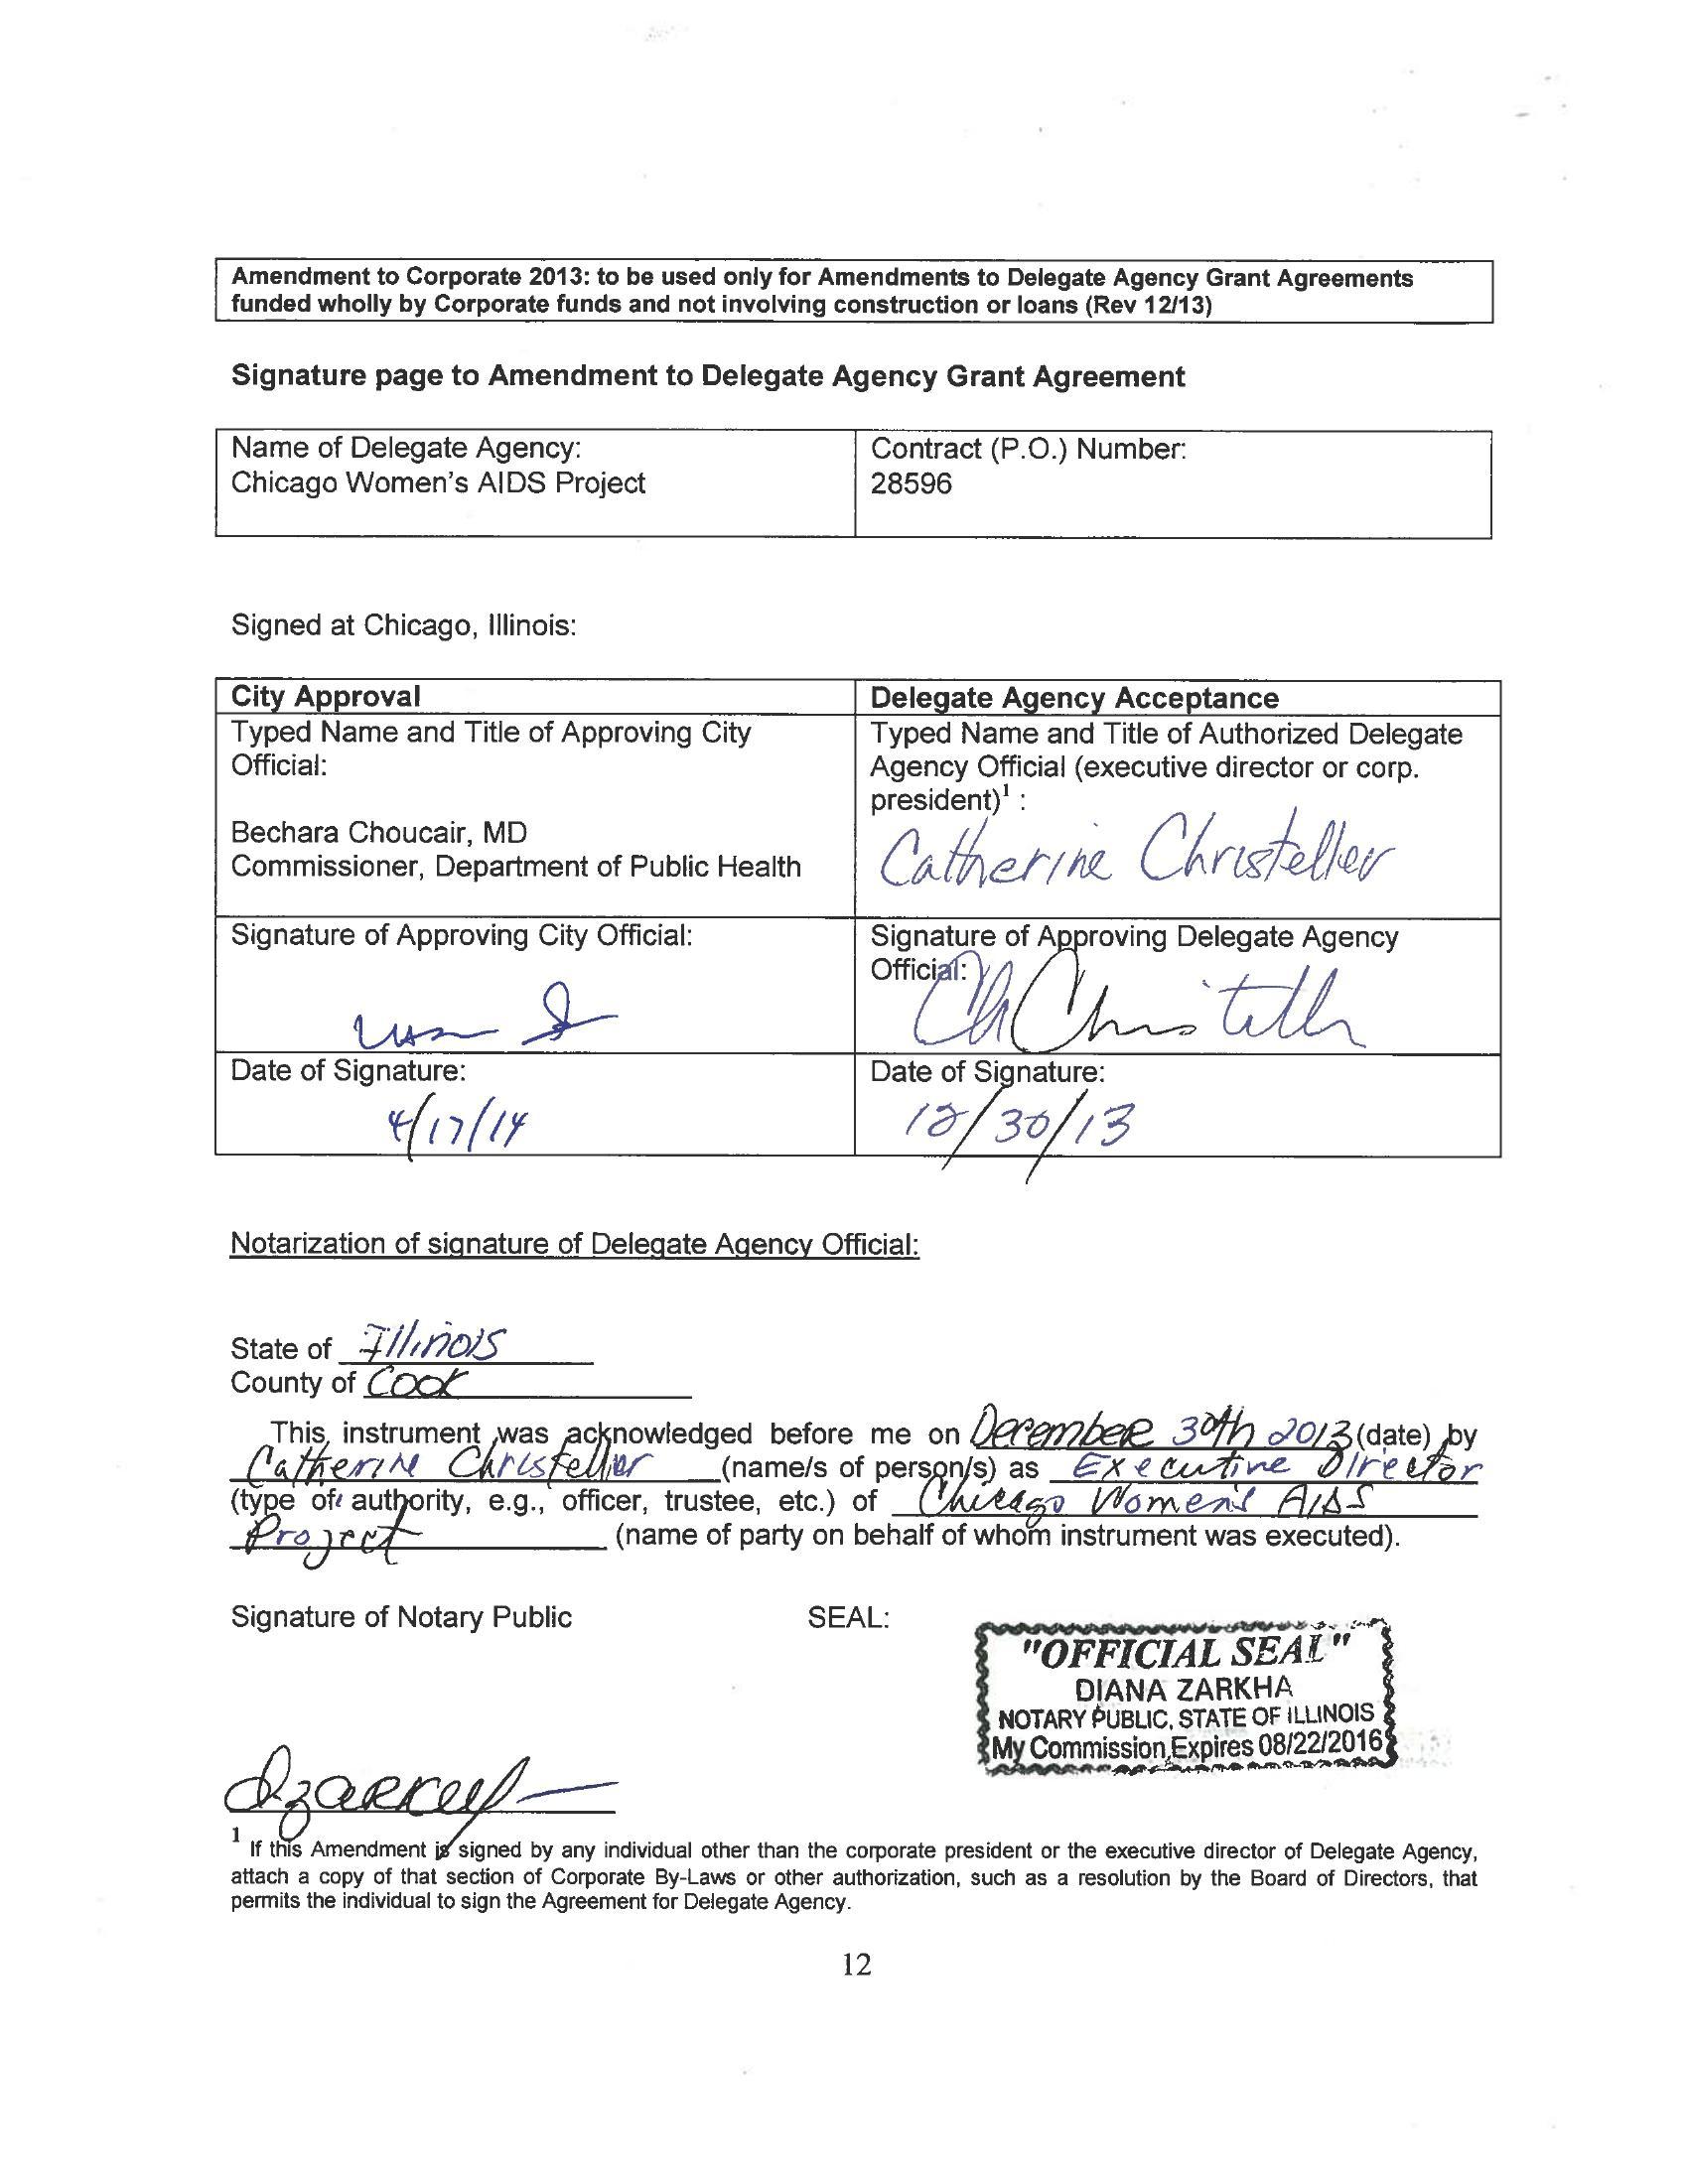 Amendment to Corporate 2013: to be used only for Amendments to Delegate Agency Grant Agreements
funded wholly by Corporate funds and not involving construction or loans (Rev 12/13)
Signature page to Amendment to Delegate Agency Grant Agreement
Name of Delegate Agency:
Chicago Women's AIDS Project
Contract (P.O.) Number:
28596
Signed at Chicago, Illinois:
City Approval
Typed Name and Title of Approving City
Official:
Bechara Choucair, MD
Commissioner, Department of Public Health
Delegate Agency Acceptance
Typed Name and Title of Authorized Delegate
Agency Official (executive director or corp.
president)¹ :
Catherine Christeller
Signature of Approving City Official:
Signature of Approving Delegate Agency
Official:
Date of Signature:
4/17/14
Date of Signature:
12/30/13
Notarization of signature of Delegate Agency Official:
State of Illinois
County of Cook
This instrument was acknowledged before me on December 30th 2013 (date) by
Catherine Christeller (name/s of person/s) as Executive Director
(type of authority, e.g., officer, trustee, etc.) of Chicago Women's AIDS
Project (name of party on behalf of whom instrument was executed).
Signature of Notary Public
SEAL:
"OFFICIAL SEAL"
DIANA ZARKHA
NOTARY PUBLIC, STATE OF ILLINOIS
My Commission Expires 08/22/2016
¹ If this Amendment is signed by any individual other than the corporate president or the executive director of Delegate Agency,
attach a copy of that section of Corporate By-Laws or other authorization, such as a resolution by the Board of Directors, that
permits the individual to sign the Agreement for Delegate Agency.
12